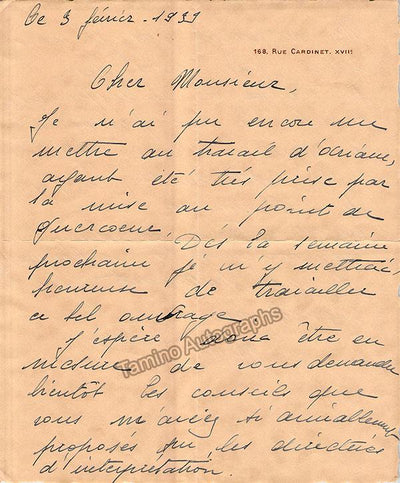 Ce 3 février - 1939
168, Rue Cardinet. XVIIe
Cher Monsieur,
Je n'ai pu encore me
mettre au travail d'Ariane,
ayant été très prise par
la mise au point de
Guercoeur. Dès la semaine
prochaine je m'y mettrai,
heureuse de travailler
ce bel ouvrage
J'espère donc être en
mesure de vous demander
bientôt les conseils que
vous m'aviez si aimablement
proposés sur les directives
d'interprétation.
Tamino Autographs